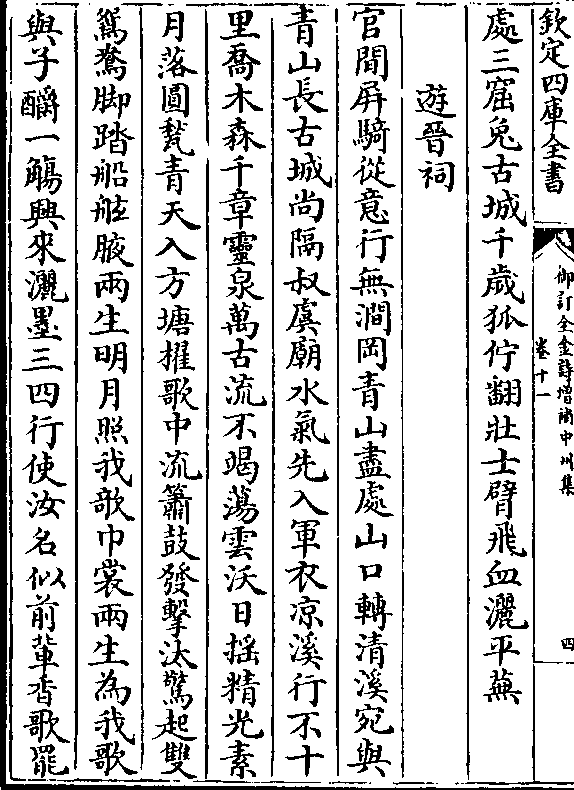 欽定四庫全書
御訂全金詩增補中州集
卷十一
四
處三窟兔古城千歲狐佇翻壯士臂飛血灑平蕪
遊晉祠
官閒屏騎從意行無澗岡青山盡處山口轉清溪宛與
青山長古城尚隔叔虞廟水氣先入軍衣凉溪行不十
里喬木森千章靈泉萬古流不竭蕩雲沃日揺精光素
月落圓甃青天入方塘櫂歌中流簫鼓發擊汰驚起雙
鴛鴦脚踏船舷腋兩生明月照我歌巾裳兩生為我歌
與子釂一觴興來灑墨三四行使汝名似前軰香歌罷